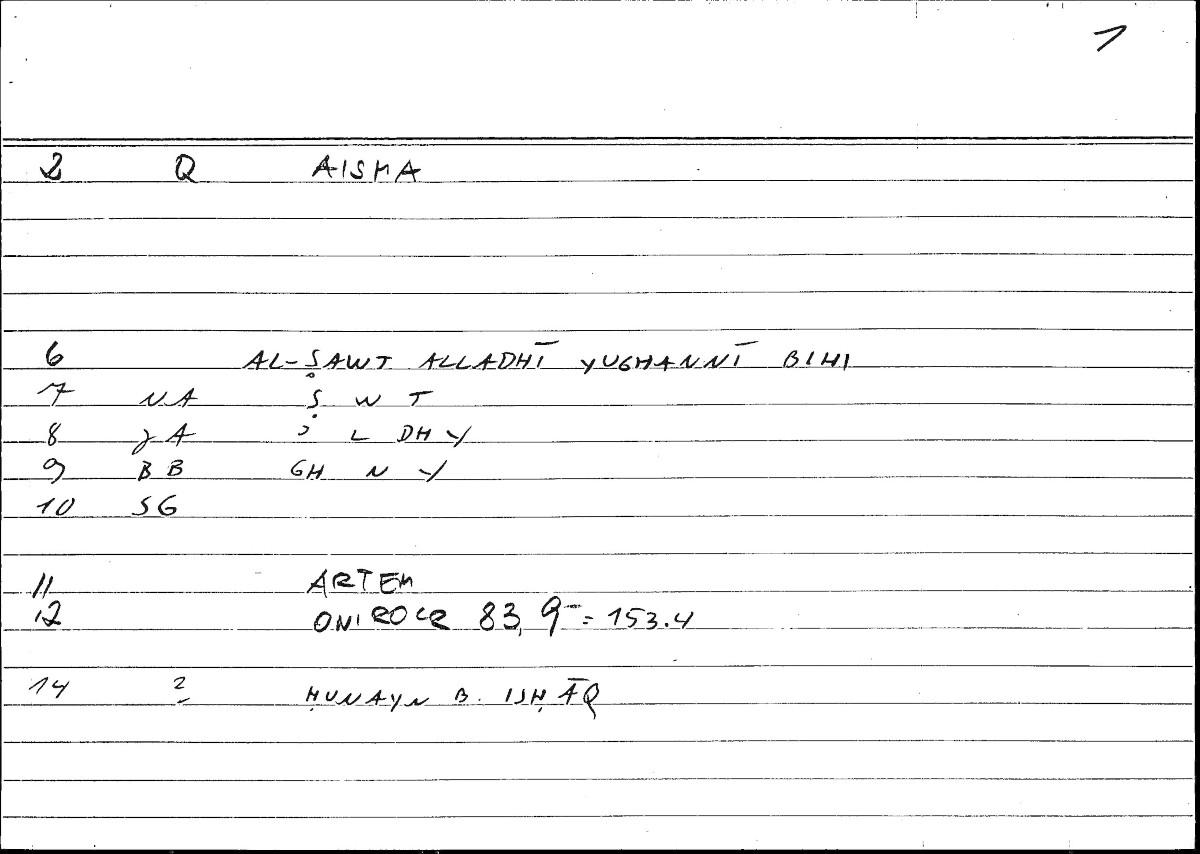 1
2 Q AISHA
6 AL-ṢAWT ALLADHĪ YUGHANNĪ BIHI
7 NA Ṣ W T
8 JA ʾ L DH Y
9 BB GH N Y
10 SG
11 ARTEM
12 ONIROCR 83, 9 = 153.4
14 2
ḤUNAYN B. ISḤĀQ